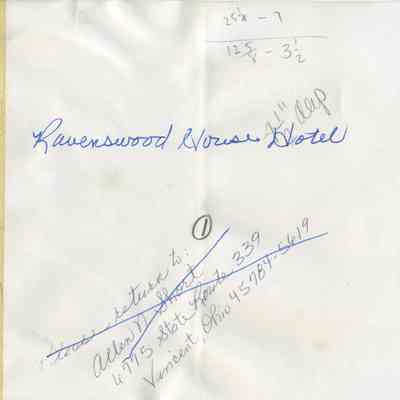 25¼ - 7
12 5/8 - 3½
Ravenswood House Hotel
①
Please return to:
Allen N Short
4775 State Route 339
Vincent, Ohio 45784-5619